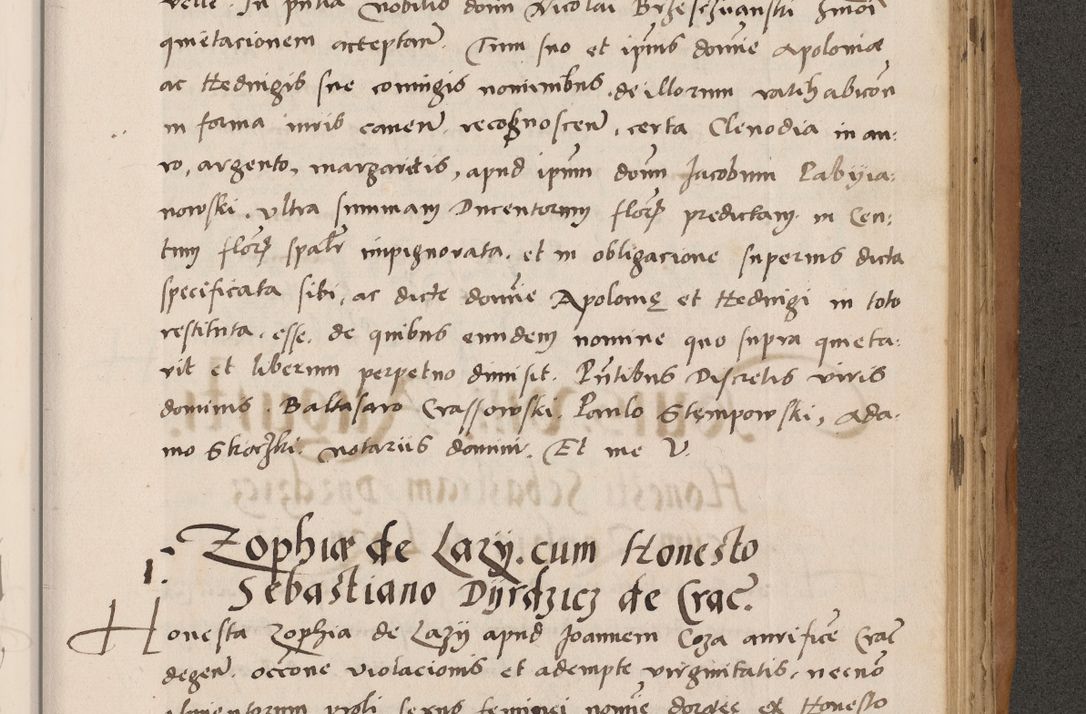 velle. In pntia Nobilis domi Nicolai Brzeschwanski
quietacionem acceptan. Cum suo et ipius domie Apoloniæ
ac Hedvigis sue coniugis nominibus, de illorum ratihabicon
in forma iuris caven. recognoscen, certa Clenodia in au:
ro, argento, margaretis, apud ipium doim Jacobum Labÿia:
nowski, ultra summam Ducentorum flor predictam in Cen:
tum flor spalr impignorata, et in obligacione superius dicta
specificata sibi, ac dicte domie Apolonię et Hedvigi in toto
restituta, esse, de quibus eundem nomine quo supra quieta:
vit et liberum perpetuo dimisit. Pntibus Discretis viris
dominis Baltasaro Crassowski, Paulo Stępowski, Ada:
mo Skoczki, notariis domini. Et me V.
Zophiæ de Lazÿ. cum Honesto
Sebastiano Dÿrdzicz de Crac.
1.
Honesta Zophia de Lazÿ apud Joannem Coza aurifice Crac
degen. occone violacionis et adempte virginitatis, necno
alimentorum proli sexus feminei nomie Dorotee ex Honesto